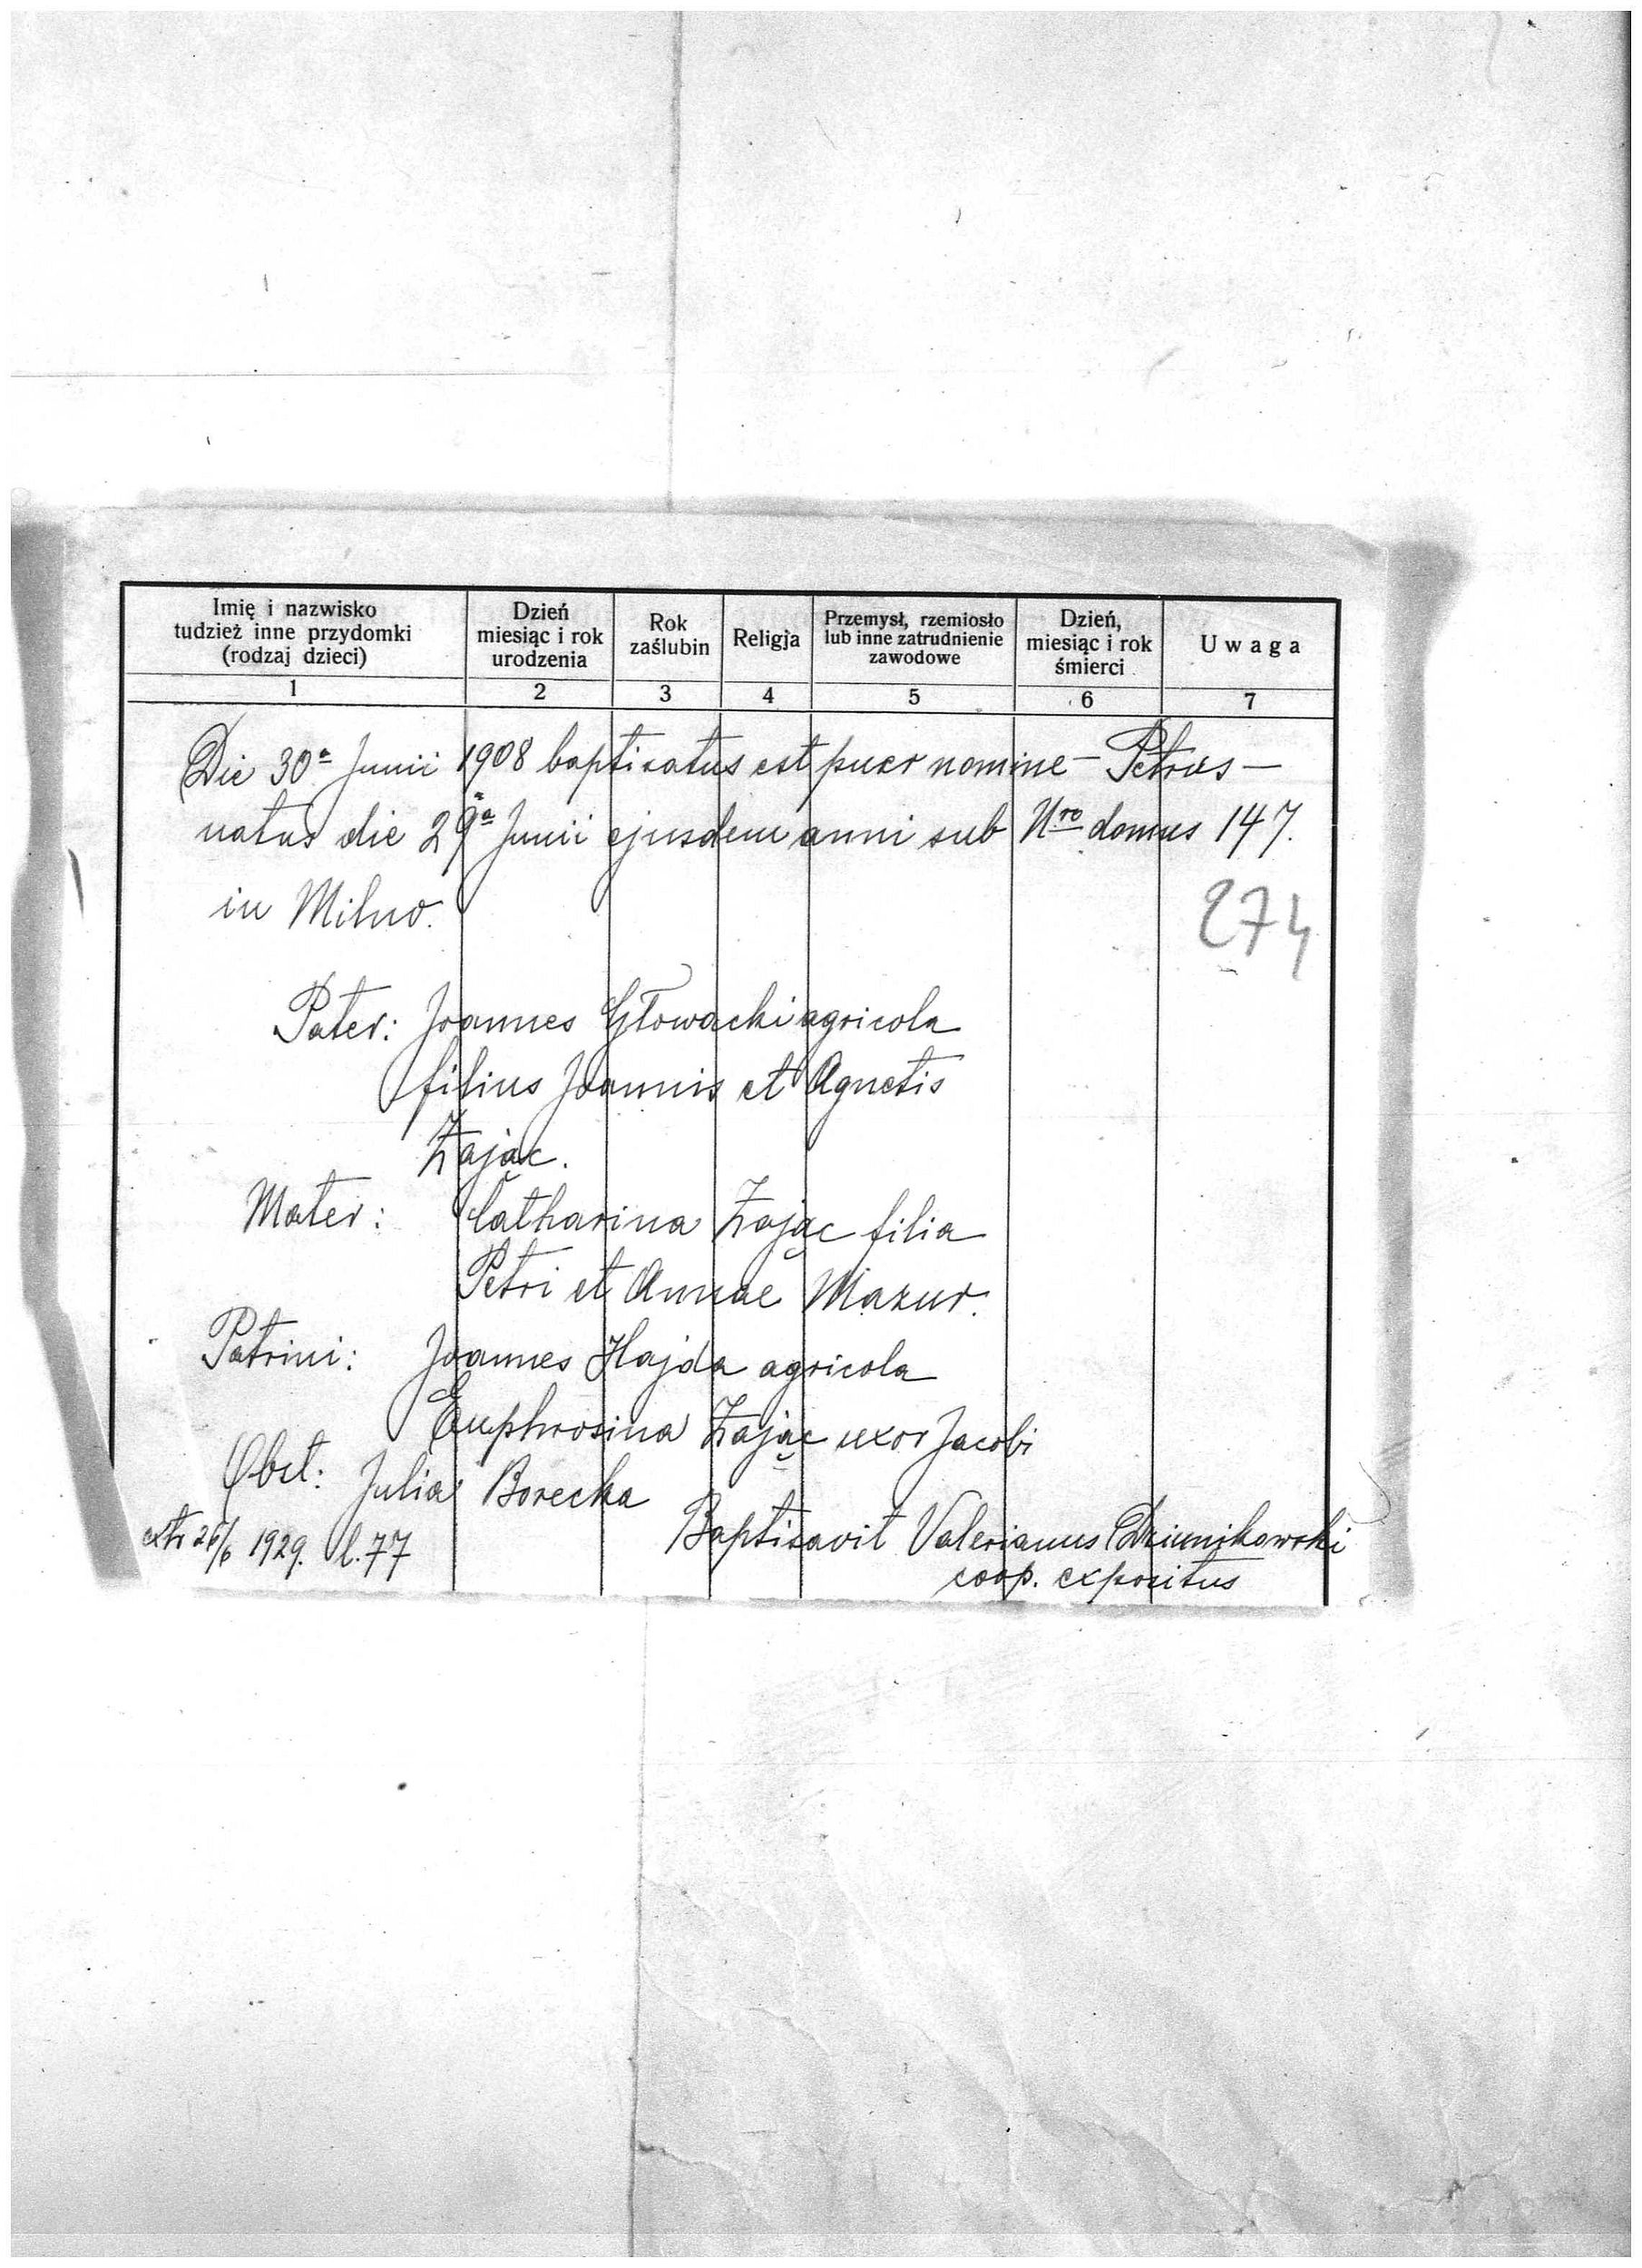 Imię i nazwisko
tudzież inne przydomki
(rodzaj dzieci)
Dzień
miesiąc i rok
urodzenia
Rok
zaślubin
Religja
Przemysł, rzemiosło
lub inne zatrudnienie
zawodowe
Dzień,
miesiąc i rok
śmierci
Uwaga
1 2 3 4 5 6 7
Die 30ª Junii 1908 baptizatus est puer nomine - Petrus -
natus die 29ª Junii ejusdem anni sub Nro domus 147.
in Milno.
274
Pater: Joannes Głowacki agricola
filius Joannis et Agnetis
Zając.
Mater: Catharina Zając filia
Petri et Annae Mazur.
Patrini: Joannes Hajda agricola
Euphrosina Zając uxor Jacobi
Obst: Julia Borecka
Baptizavit Valerianus Dziunikowski
extr 26/6 1929. l. 77
coop. expositus